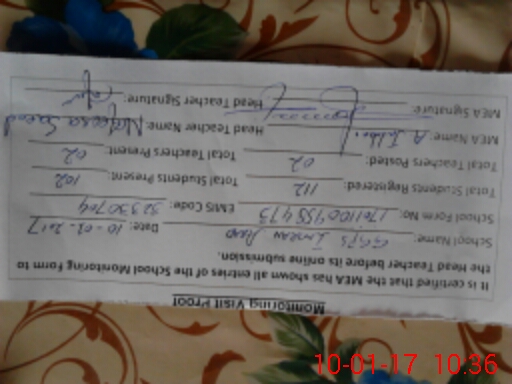 Monitoring Visit Proof
It is certified that the MEA has shown all entries of the School Monitoring Form to
the Head Teacher before its online submission.
School Name: GGPS Imran Abad Date: 10-01-2017
School Form No: EMIS Code: 32330704
Total Students Registered: 112 Total Students Present: 102
Total Teachers Posted: 02 Total Teachers Present: 02
MEA Name: A Jabbar Head Teacher Name: Nafeesa Saeed
MEA Signature: Head Teacher Signature:
10-01-17 10:36